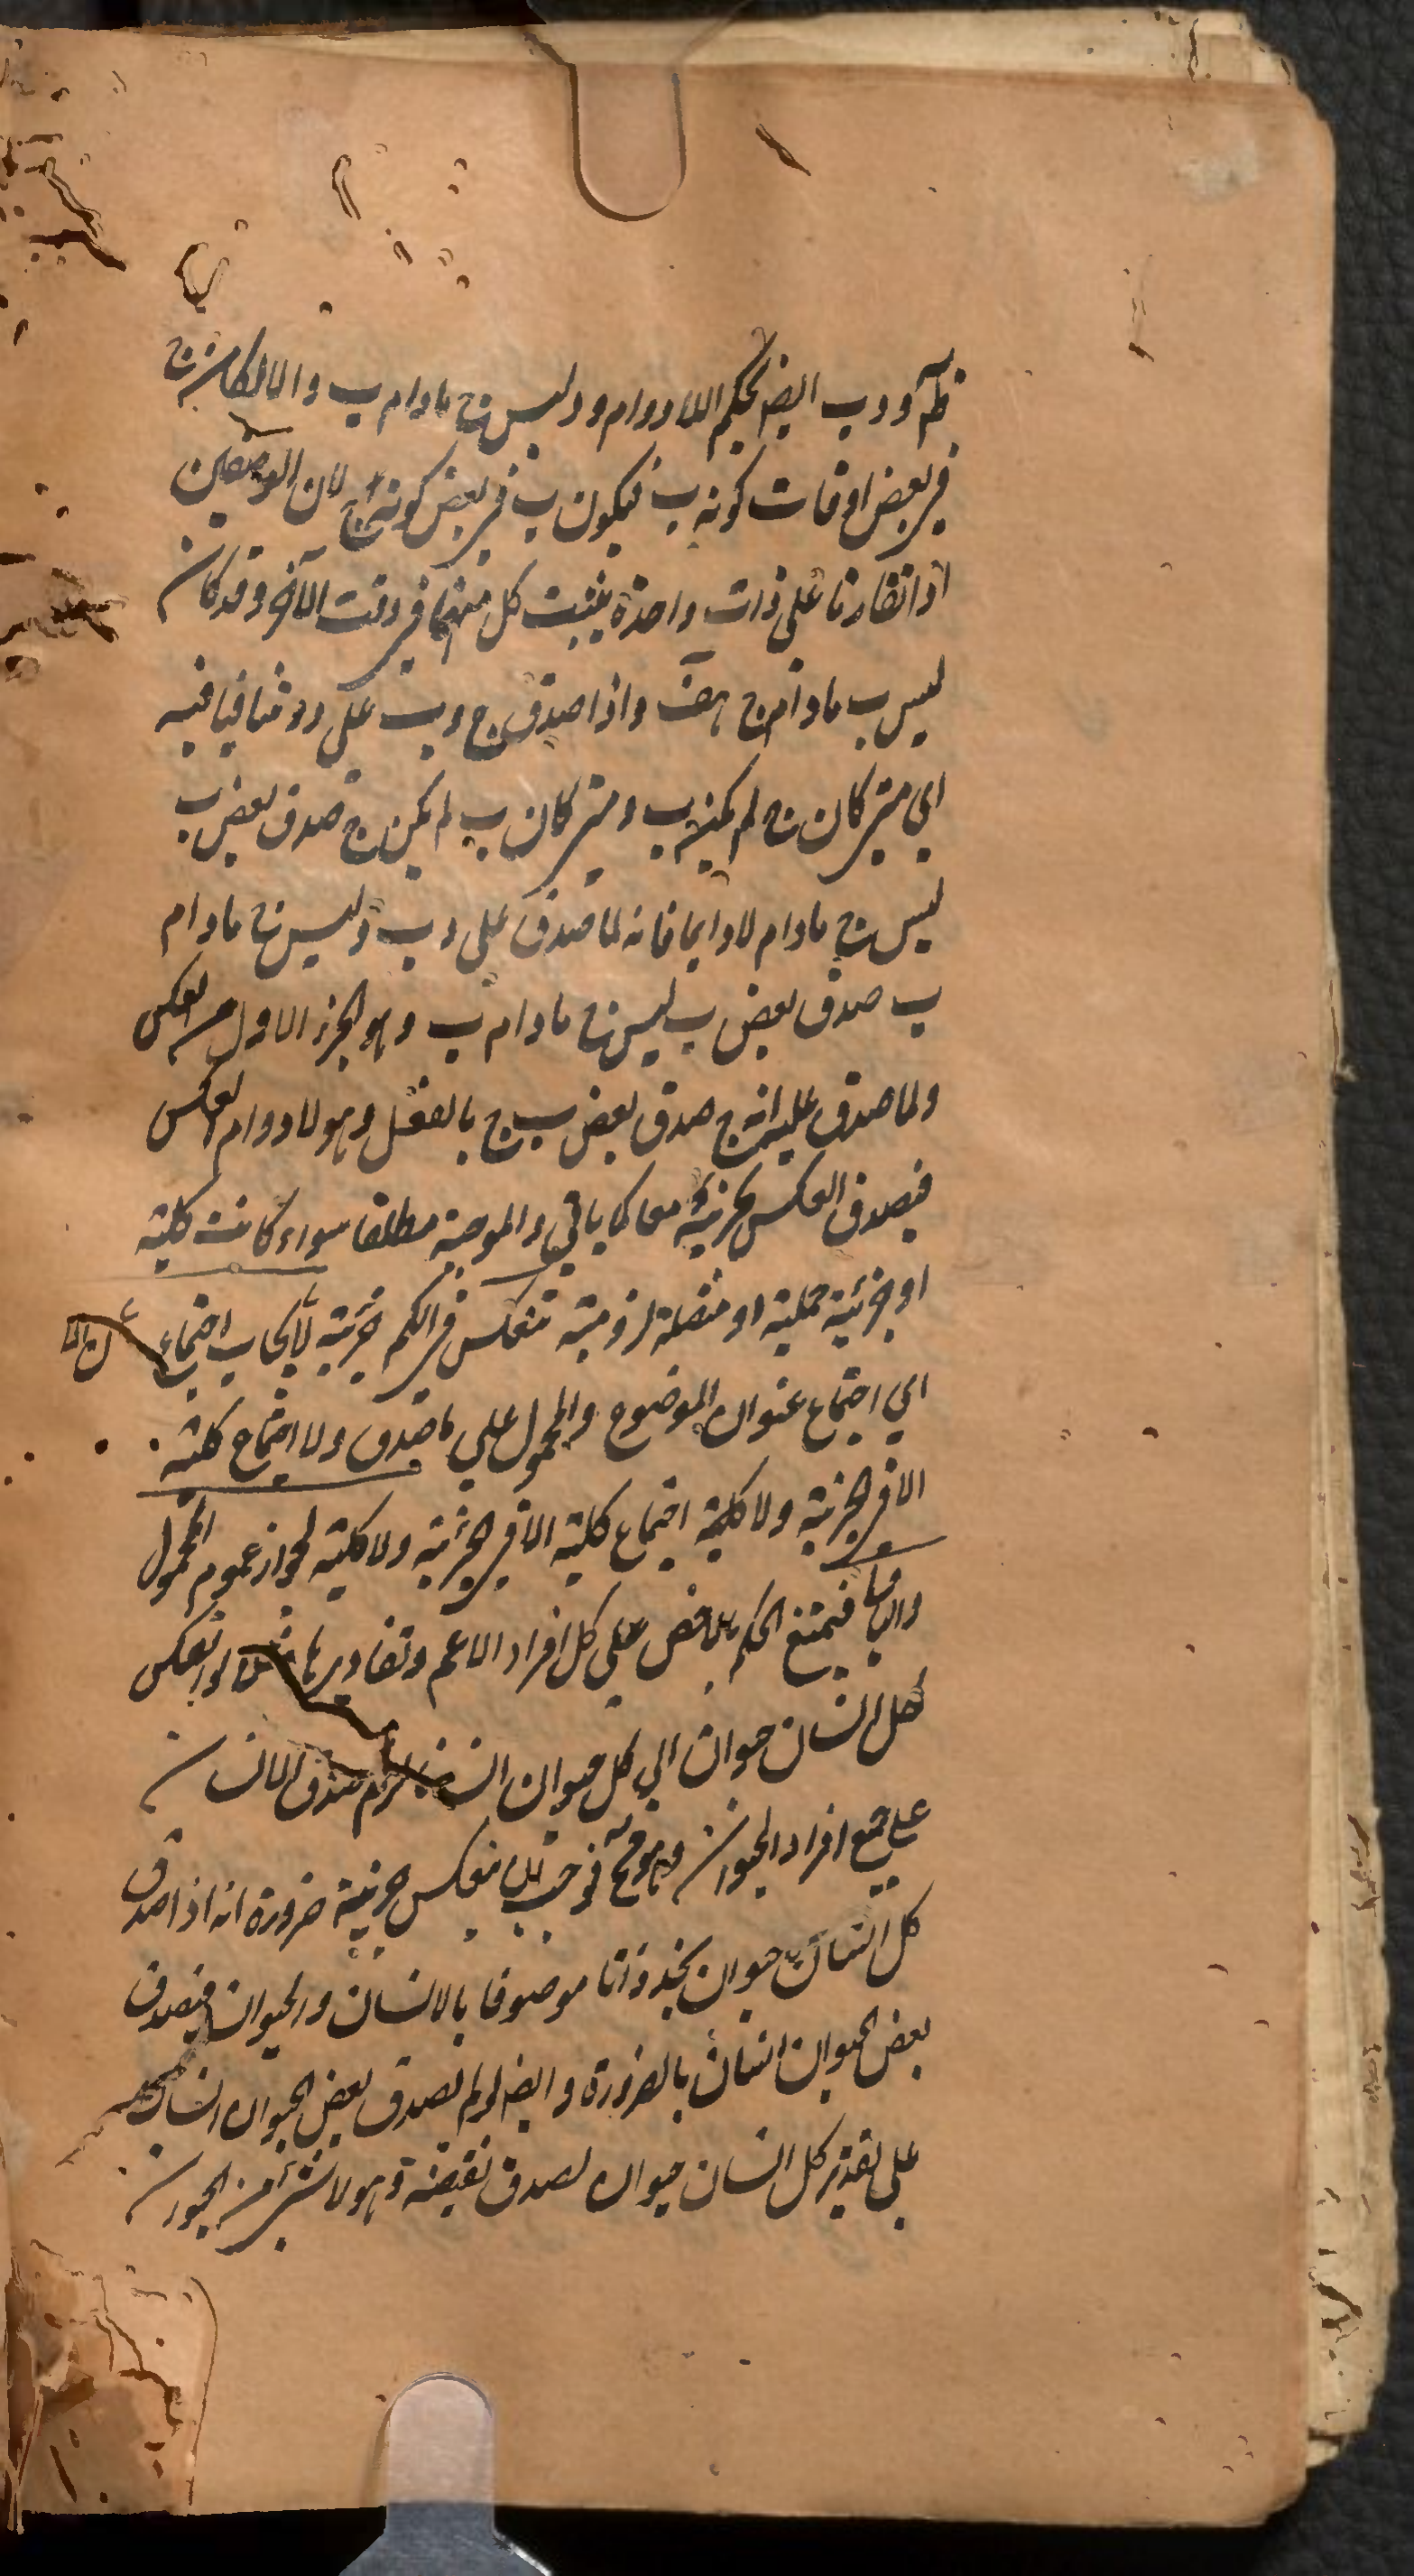 ظ و د ب ايض بحكم اللادوام و د ليس ج مادام ب و الا لكان ج
في بعض اوقات كونه ب فيكون ب في بعض كونه ج لان الوصفين
اذا تقارنا على ذات واحدة يثبت كل منهما في وقت الآخر وقد كان
ليس ب مادام ج هف واذا صدق ج و ب على د و تنافيا فيه
اي متى كان ج لم يكن ب ومتى كان ب لم يكن ج صدق بعض ب
ليس ج مادام لا دايما فانه لما صدق على د ب و ليس ج مادام
ب صدق بعض ب ليس ج مادام ب وهو الجزء الاول من العكس
ولما صدق عليه انه ج صدق بعض ب ج بالفعل وهو لا دوام العكس
فيصدق العكس بجزئيه معا كما ياتي والموجبة مطلقا سواء كانت كلية
او جزئية حملية او متصلة لزومية تنعكس في الكم جزئية لايجاب اجتماع
اي اجتماع عنوان الموضوع والمحمول على ما صدق ولا اجتماع كلية
الا في الجزئية ولا كلية اجتماع كلية الا في الجزئية ولا كلية لجواز عموم المحمول
والتالي فيمتنع الحكم بالاخص على كل افراد الاعم وتقاديرها مثلا لو انعكس
كل انسان حيوان الى كل حيوان انسان لزم صدق الانسان
على جميع افراد الحيوان وهو مح فوجب ان ينعكس جزئية ضرورة انه اذا صدق
كل انسان حيوان نجد ذاتا موصوفا بالانسان والحيوان فيصدق
بعض الحيوان انسان بالضرورة وايض لو لم يصدق بعض الحيوان انسان
على تقدير كل انسان حيوان لصدق نقيضه وهو لا شئ من الحيوان